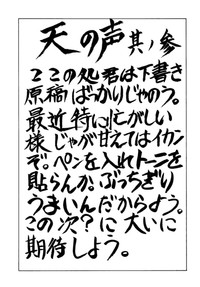 天の声 其ノ参
ここの処君は下書き
原稿ばっかりじゃのう。
最近特に忙がしい
様じゃが甘えてはイカン
ぞ。ペンを入れトーンを
貼らんか。ぶっちぎり
うまいんだからよう。
この次?に大いに
期待しよう。